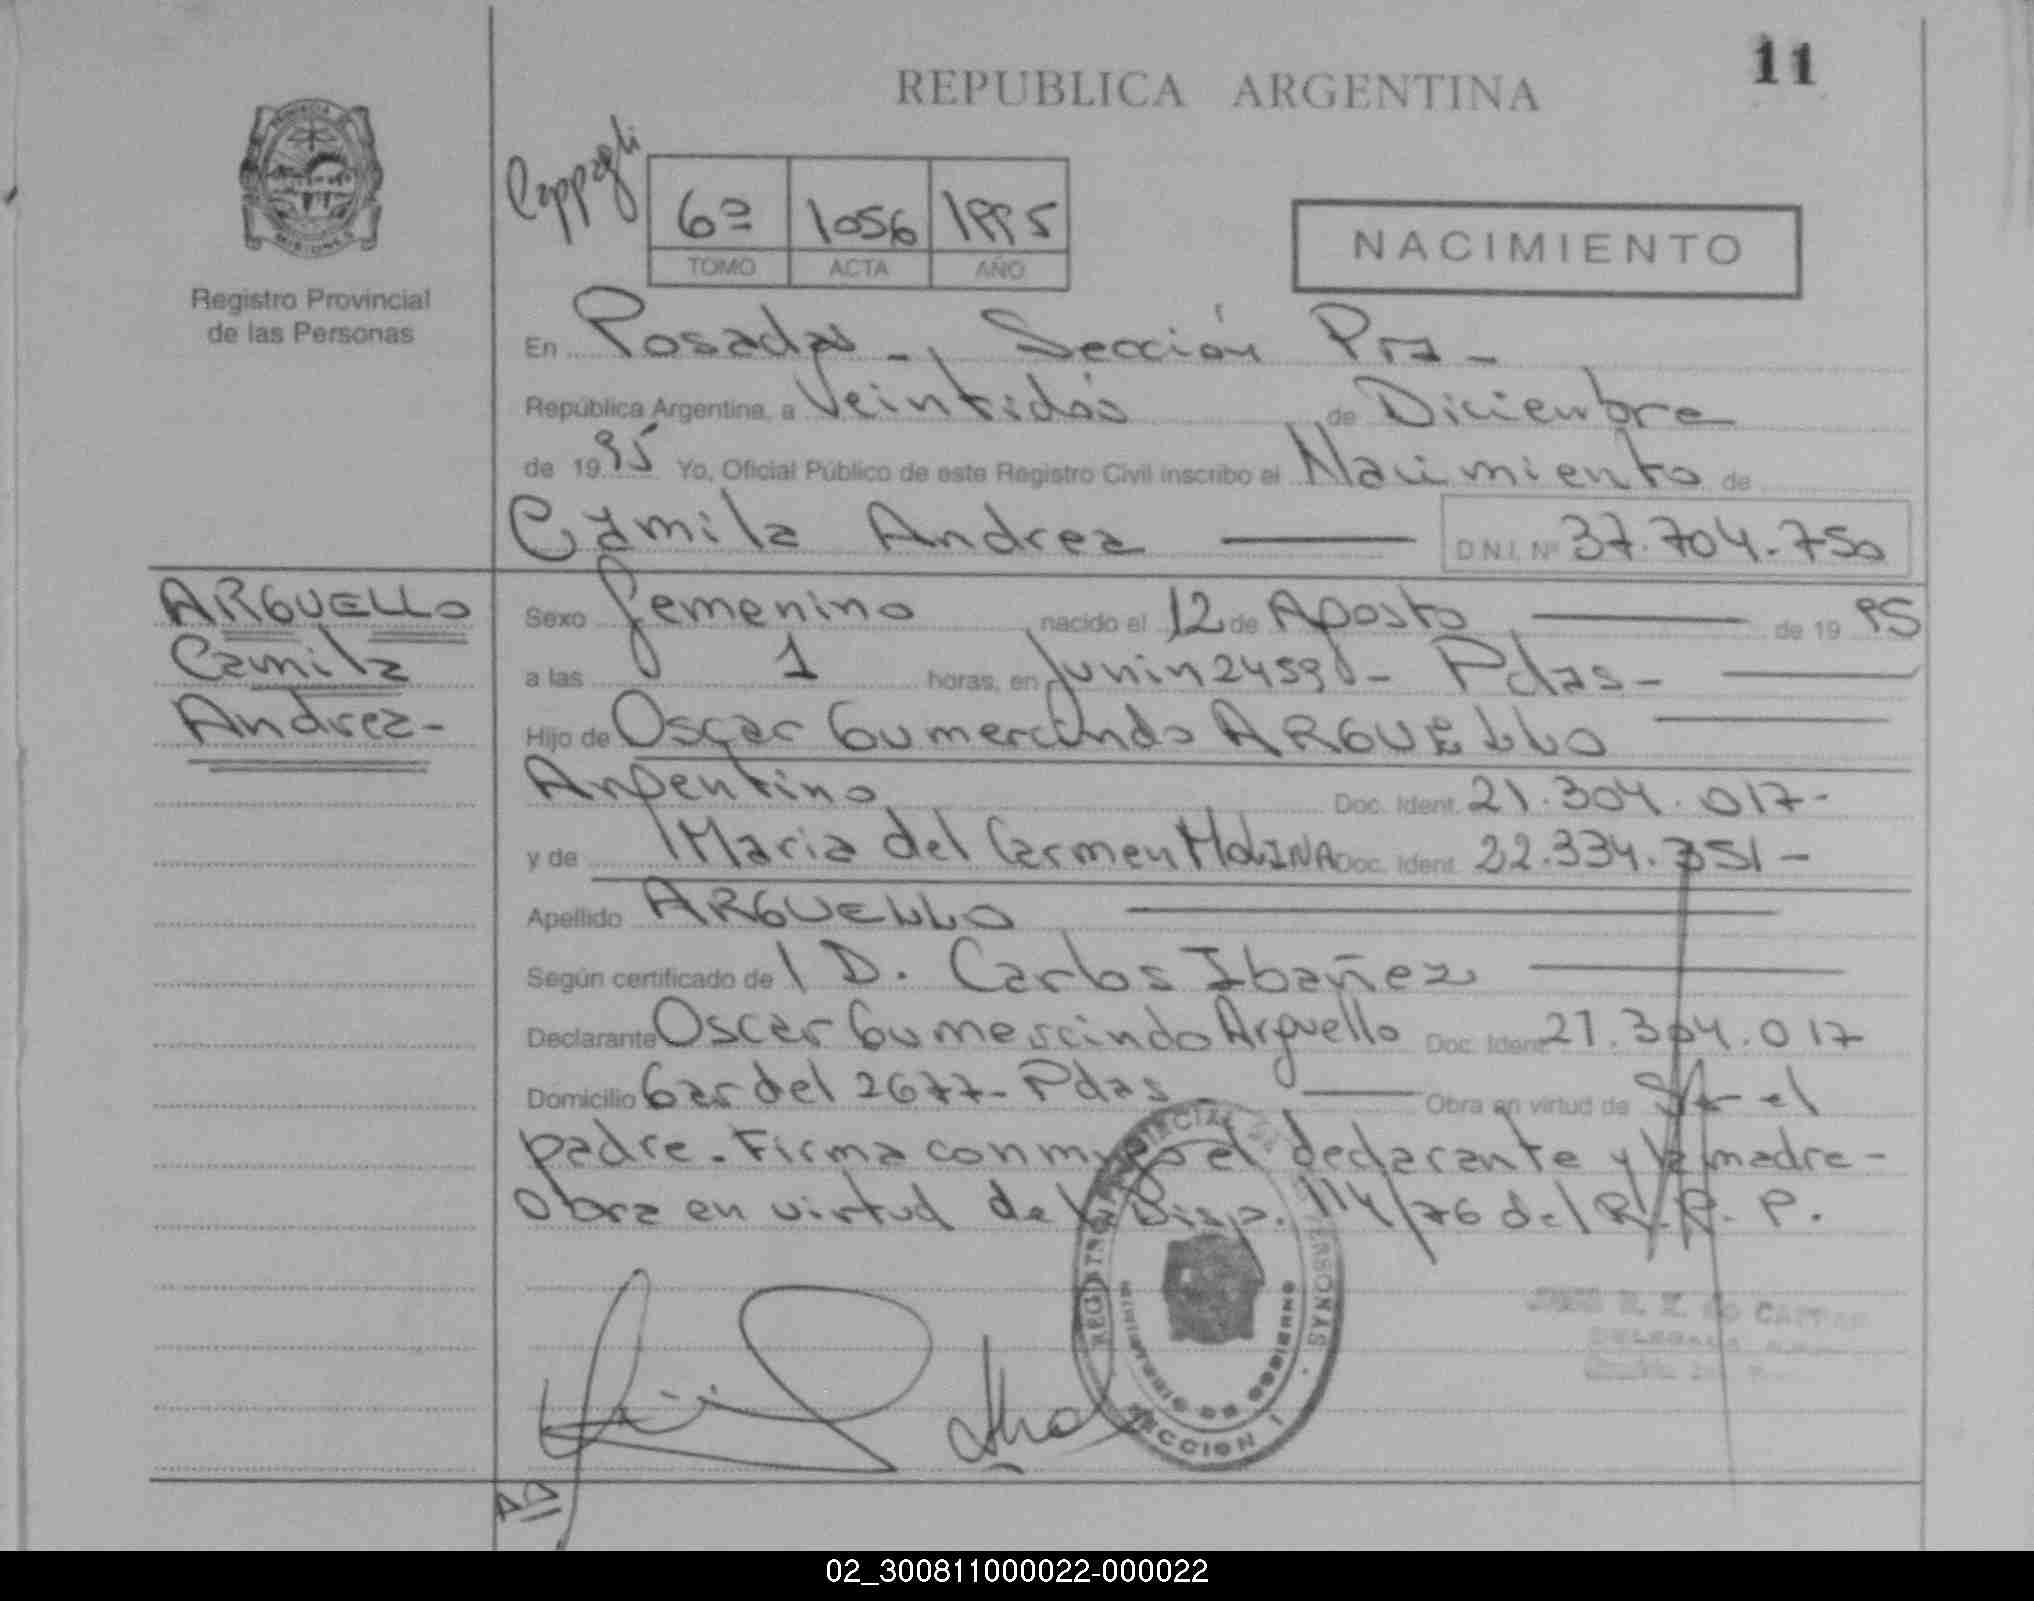 11
REPUBLICA ARGENTINA
Cappagli
6º 1056 1995
TOMO ACTA AÑO
NACIMIENTO
Registro Provincial
de las Personas
En Posadas -, Sección Pra -
República Argentina, a Veintidós de Diciembre
de 1995 Yo, Oficial Público de este Registro Civil inscribo el Nacimiento de
Camila Andrea D.N.I. Nº 37.704.750
ARGUELLO
Camila
Andrea-
Sexo femenino nacido el 12 de Agosto de 1995
a las 1 horas, en Junin - Pdas -
Hijo de Oscar Gumercindo ARGUELLO
Argentino Doc. Ident. 21.304.017-
y de Maria del Carmen MOLINA Doc. Ident. 22.334.351-
Apellido ARGUELLO
Según certificado de D. Carlos Ibañez
Declarante Oscar Gumercindo Arguello Doc. Ident. 21.304.017
Domicilio Gardel 2677- Pdas Obra en virtud de el
padre. Firma conmigo el declarante y la madre-
Obra en virtud de Disp. 114/76 del R.P.P.
REGISTRO PROVINCIAL DE LAS PERSONAS
MINISTERIO DE GOBIERNO
SECCION 1
02_300811000022-000022